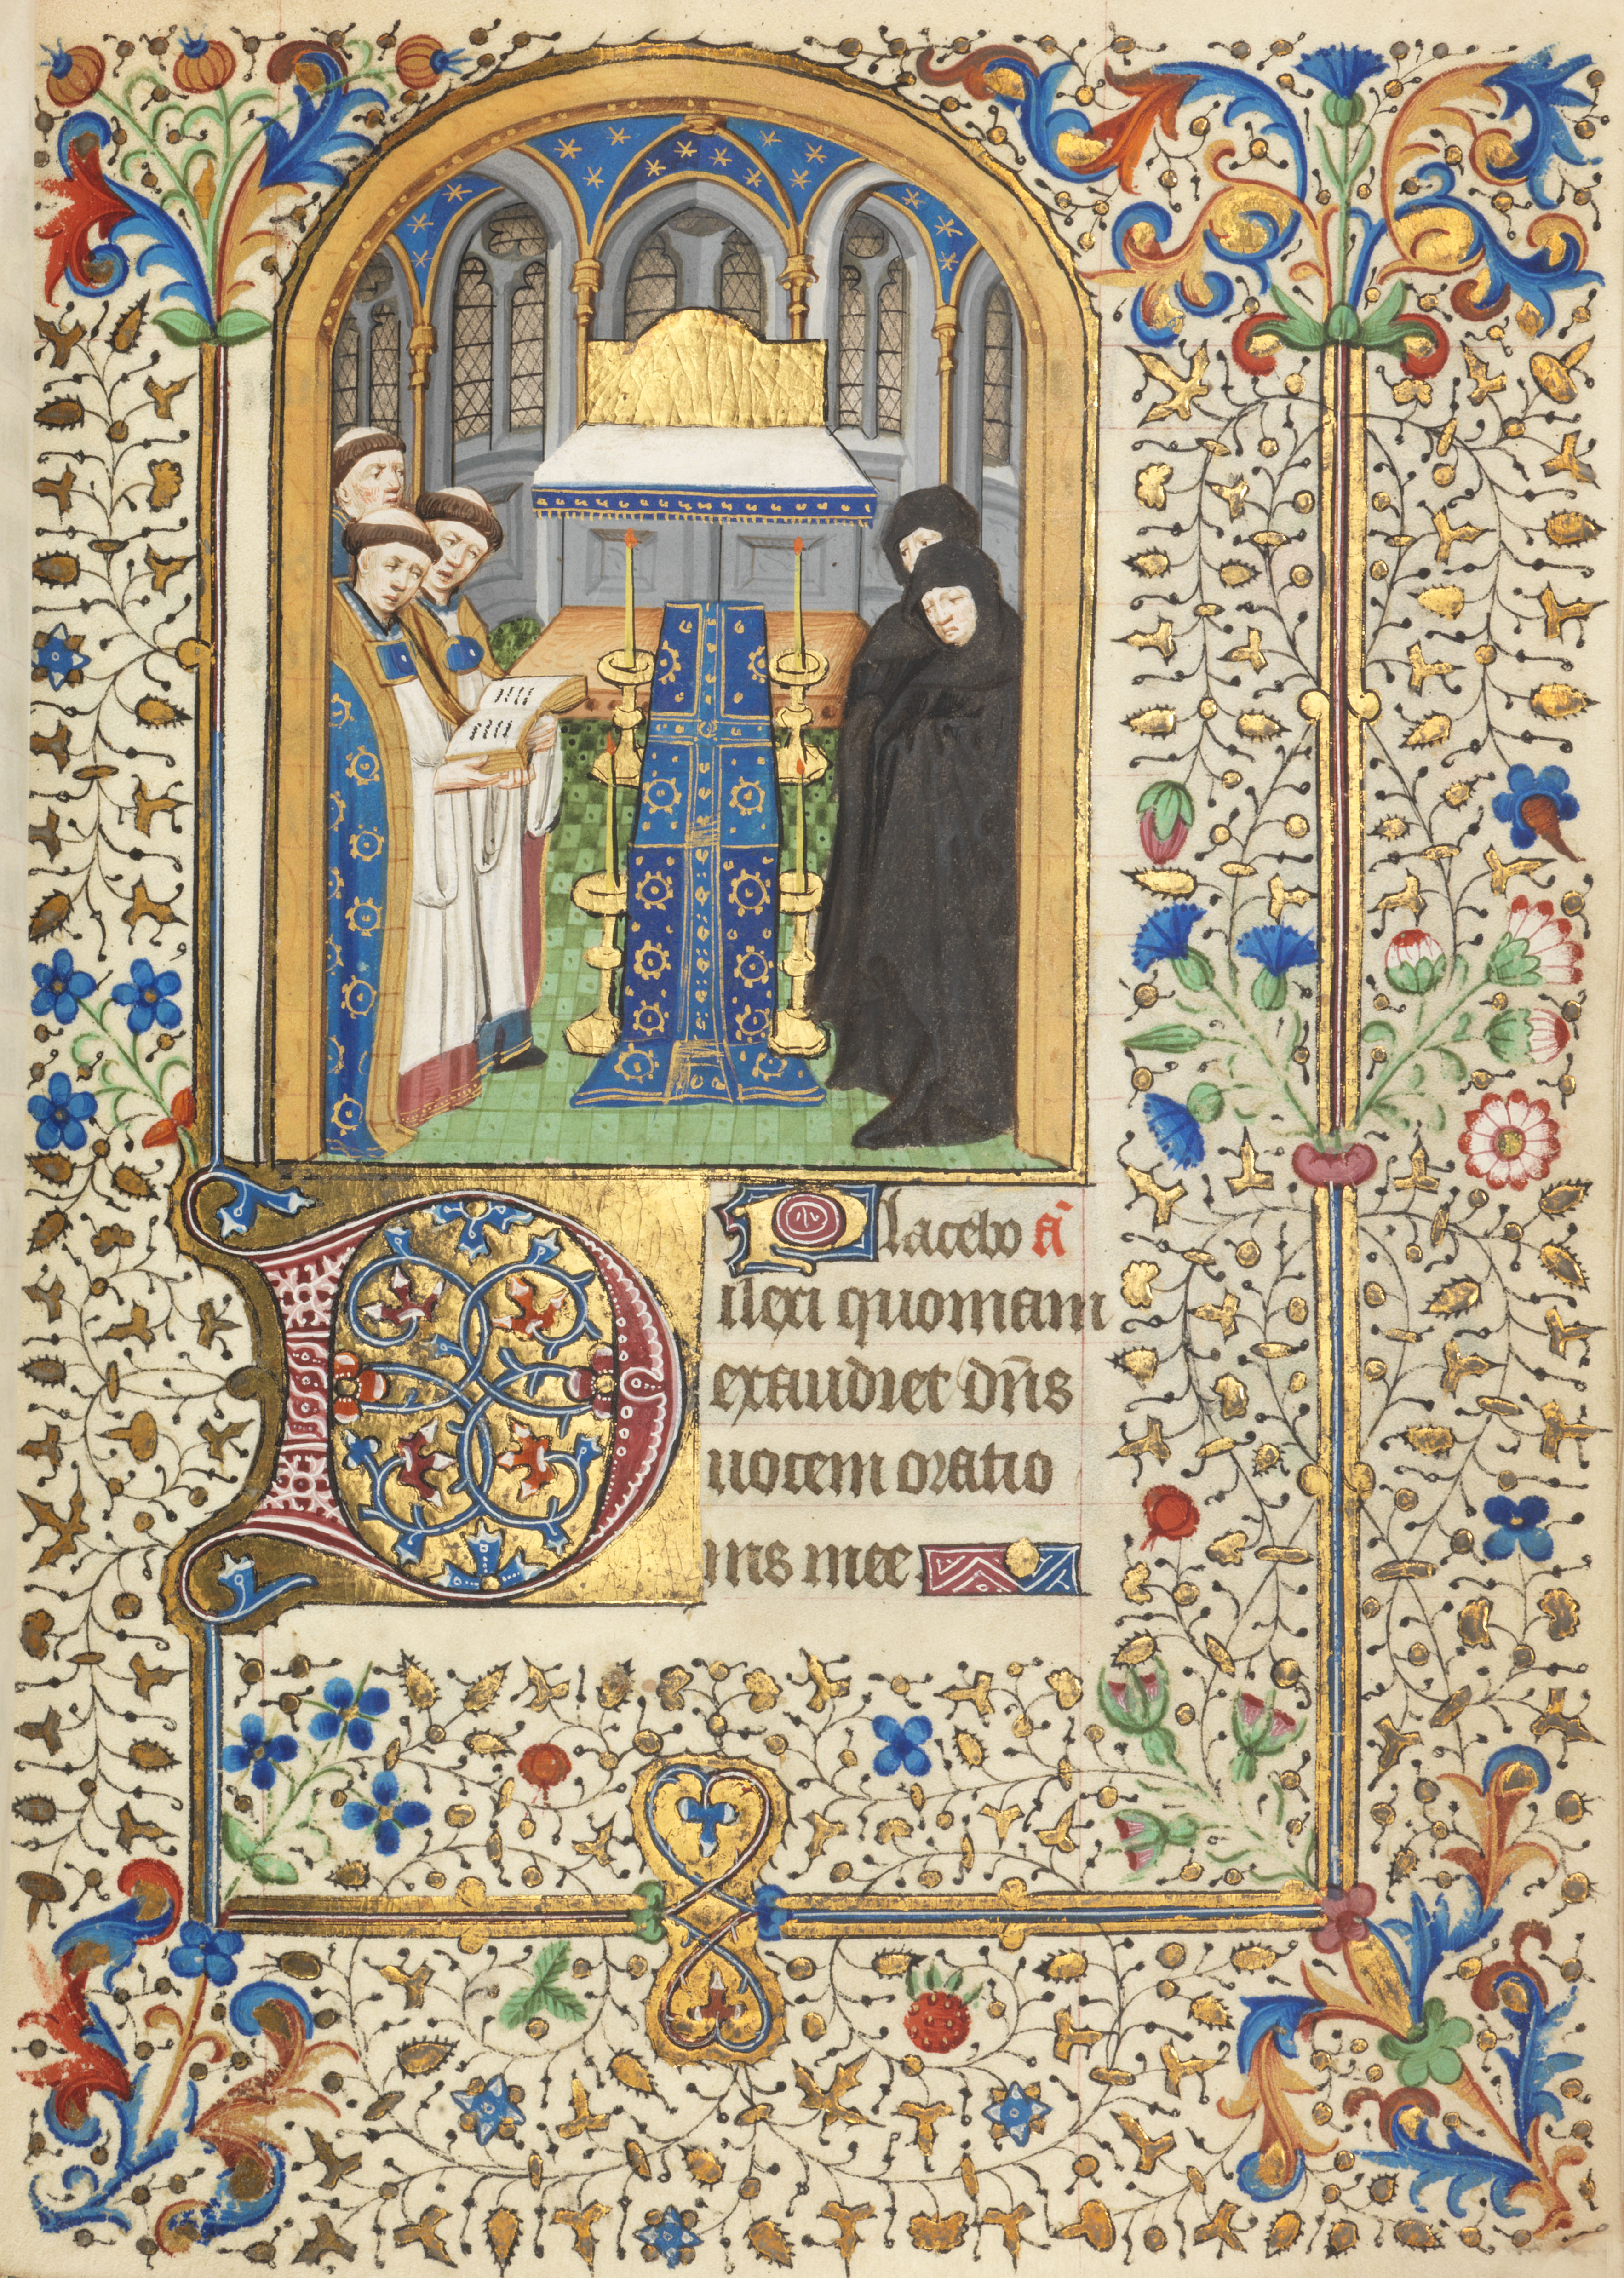 Placebo añ
Dilexi quoniam
exaudiet dñs
uocem oratio
nis mee.